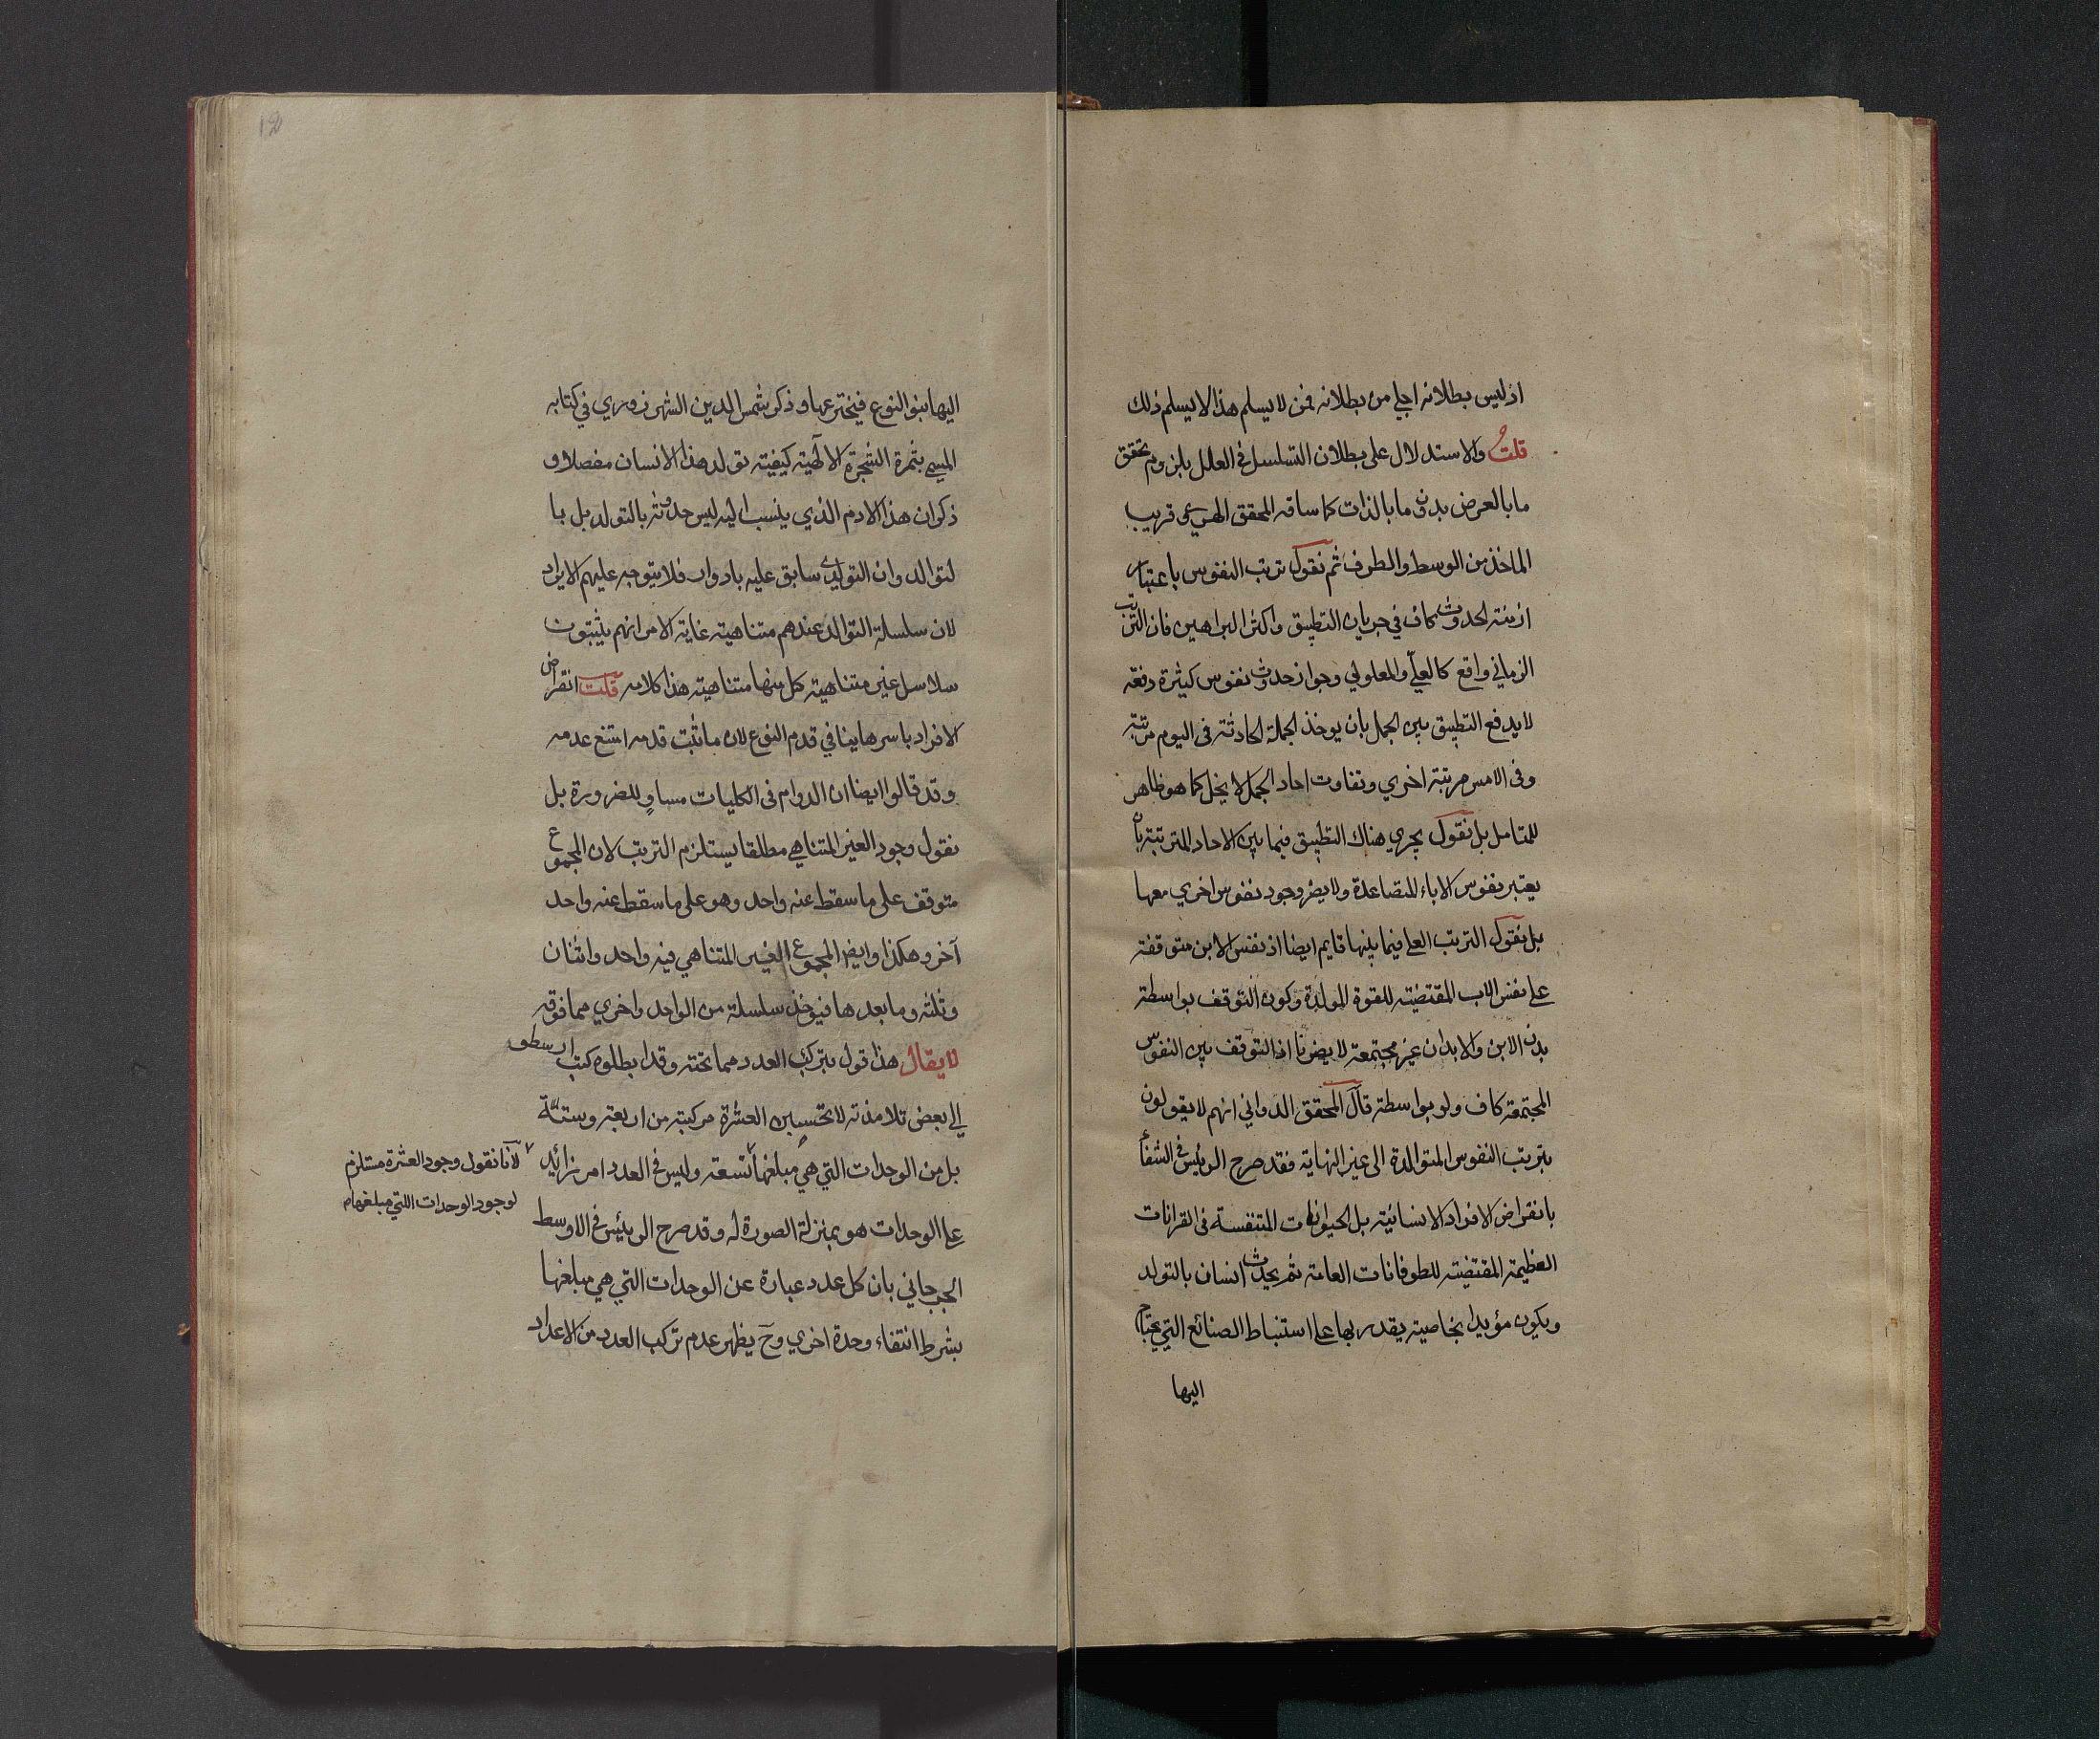 اذ ليس بطلانه اجلي من بطلانه فمن لا يسلم هذا لا يسلم ذلك
قلت والاستدلال على بطلان التسلسل في العلل بلزوم تحقق
ما بالعرض بدون ما بالذات كما ساقه المحقق الهروي قريب
الماخذ من الوسط والطرف ثم نقول ترتب النفوس باعتبار
ازمنة الحدوث كاف في جريان التطبيق واكثر البراهين فان الترتب
الزماني واقع كالعلي والمعلولي وجواز حدوث نفوس كثيرة دفعة
لا يدفع التطبيق بين الجمل بان يوخذ الجملة الحادثة في اليوم مرتبة
وفي الامس مرتبة اخري وتفاوت احاد الجمل لا يخل كما هو ظاهر
للمتامل بل نقول يجري هناك التطبيق فيما بين الاحاد المترتبة بان
يعتبر نفوس الاباء المتصاعدة ولا يضر وجود نفوس اخري معها
بل نقول الترتب العلي فيما بينها قايم ايضا اذ نفس الابن متوقفة
علي نفس الاب المقتضية للقوة المولدة وكون التوقف بواسطة
بدن الابن والابدان غير مجتمعة لا يضرنا اذ التوقف بين النفوس
المجتمعة كاف ولو بواسطة قال المحقق الدواني انهم لا يقولون
بترتب النفوس المتوالدة الى غير النهاية فقد صرح الرئيس في الشفأ
بانقراض الافراد الانسانية بل الحيوانات المتنفسة في القرانات
العظيمة المقتضية للطوفانات العامة ثم يحدث انسان بالتولد
ويكون مؤيدا بخاصية يقدر بها علي استنباط الصنائع التي يحتاج
اليها
اليها بنو النوع فيخترعها وذكر شمس الدين الشهرزوري في كتابه
المسمي بثمرة الشجرة الالٰهية كيفية تولد هذا الانسان مفصلا و
ذكر ان هذا الادم الذي ينسب اليه ليس حدوثه بالتولد بل با
لتوالد وان التولدي سابق عليه بادوار فلا يتوجه عليهم الايراد
لان سلسلة التوالد عندهم متناهية غاية الامر انهم يثبتون
سلاسل غير متناهية كل منها متناهية هذا كلامه قلت انقراض
الافراد باسرها ينافي قدم النوع لان ما ثبت قدمه امتنع عدمه
وقد قالوا ايضا ان الدوام في الكليات مساوٍ للضرورة بل
نقول وجود الغير المتناهي مطلقا يستلزم الترتب لان المجموع
متوقف على ما سقط عنه واحد وهو على ما سقط عنه واحد
آخر وهكذا وايضا المجموع الغير المتناهي فيه واحد واثنان
وثلثه وما بعدها فيؤخذ سلسلة من الواحد واخري مما فوقه
لا يقال هذا قول بتركب العدد مما تحته وقد ابطلوه كتب ارسطو
الي بعض تلامذته لا تحسبن العشرة مركبة من اربعة وستة
بل من الوحدات التي هي مبلغها تسعة وليس في العدد امر زائد
لانا نقول وجود العشرة مستلزم
لوجود الوحدات اللتي مبلغها
علي الوحدات هو بمنزلة الصورة له وقد صرح الرئيس في الاوسط
الجرجاني بان كل عدد عبارة عن الوحدات التي هي مبلغها
بشرط انتفاء وحدة اخري وح يظهر عدم تركب العدد من الاعداد